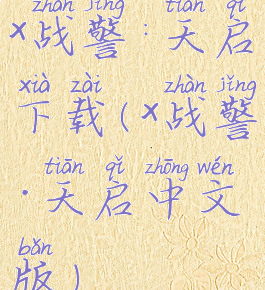 zhàn jǐng tiān qǐ
x战警:天启
xià zài zhàn jǐng
下载(x战警
tiān qǐ zhōng wén
·天启中文
bǎn
版)